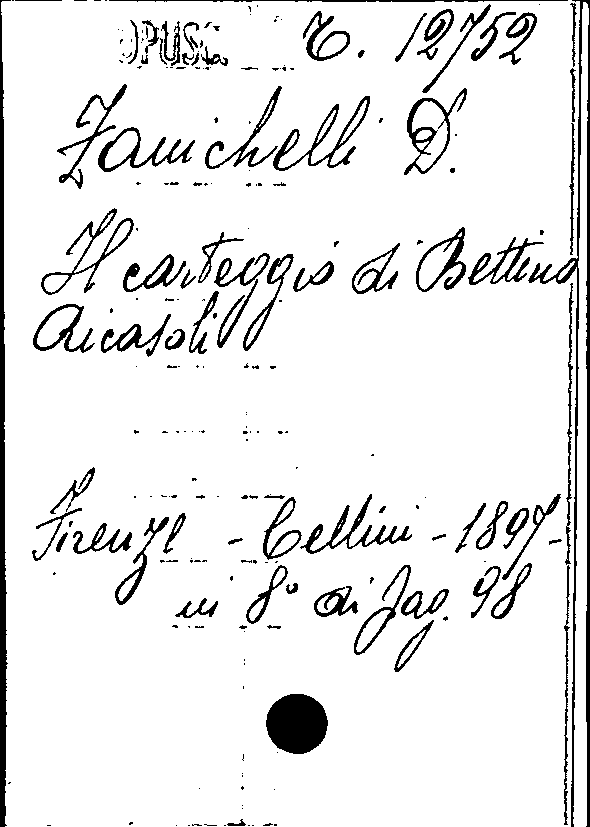 OPUSC. C. 12752
Zanichelli D.
Il carteggio di Bettino
Ricasoli
Firenze - Cellini - 1897-
in 8° di pag. 98